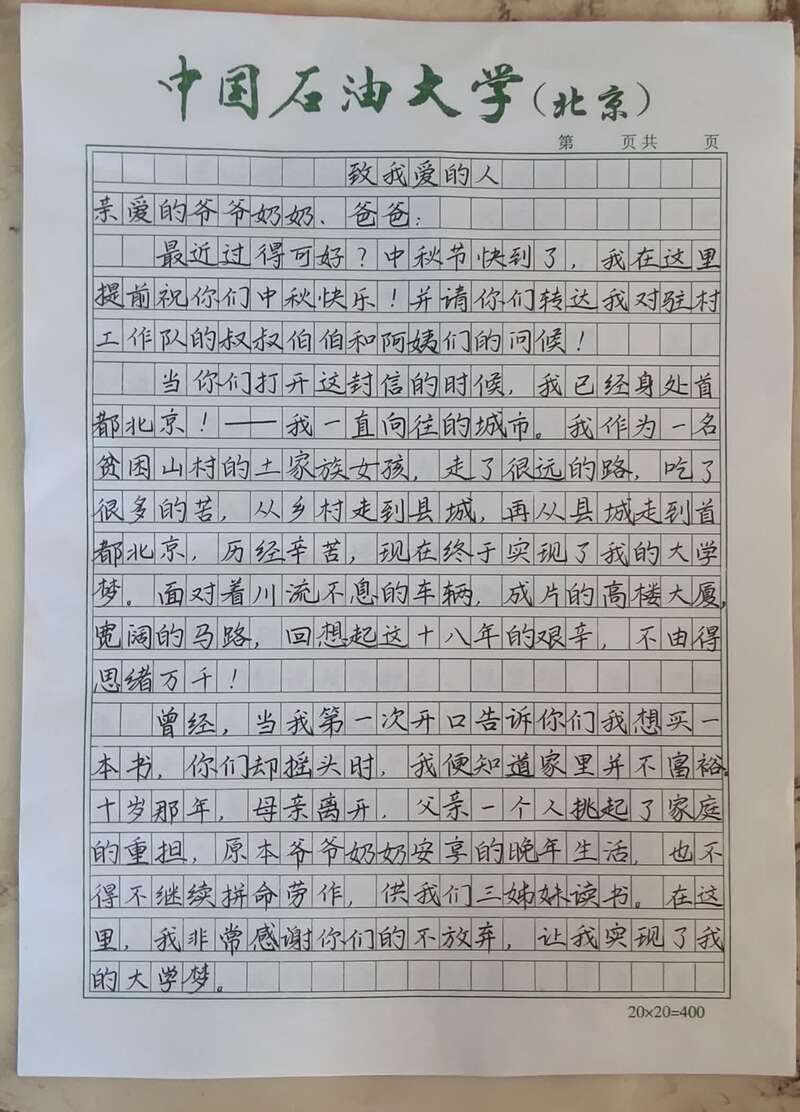 中国石油大学(北京)
第 页共 页
致我爱的人
亲爱的爷爷奶奶、爸爸:
最近过得可好?中秋节快到了,我在这里
提前祝你们中秋快乐!并请你们转达我对驻村
工作队的叔叔伯伯和阿姨们的问候!
当你们打开这封信的时候,我已经身处首
都北京!——我一直向往的城市。我作为一名
贫困山村的土家族女孩,走了很远的路,吃了
很多的苦,从乡村走到县城,再从县城走到首
都北京,历经辛苦,现在终于实现了我的大学
梦。面对着川流不息的车辆,成片的高楼大厦,
宽阔的马路,回想起这十八年的艰辛,不由得
思绪万千!
曾经,当我第一次开口告诉你们我想买一
本书,你们却摇头时,我便知道家里并不富裕。
十岁那年,母亲离开,父亲一个人挑起了家庭
的重担,原本爷爷奶奶安享的晚年生活,也不
得不继续拼命劳作,供我们三姊妹读书。在这
里,我非常感谢你们的不放弃,让我实现了我
的大学梦。
20×20=400